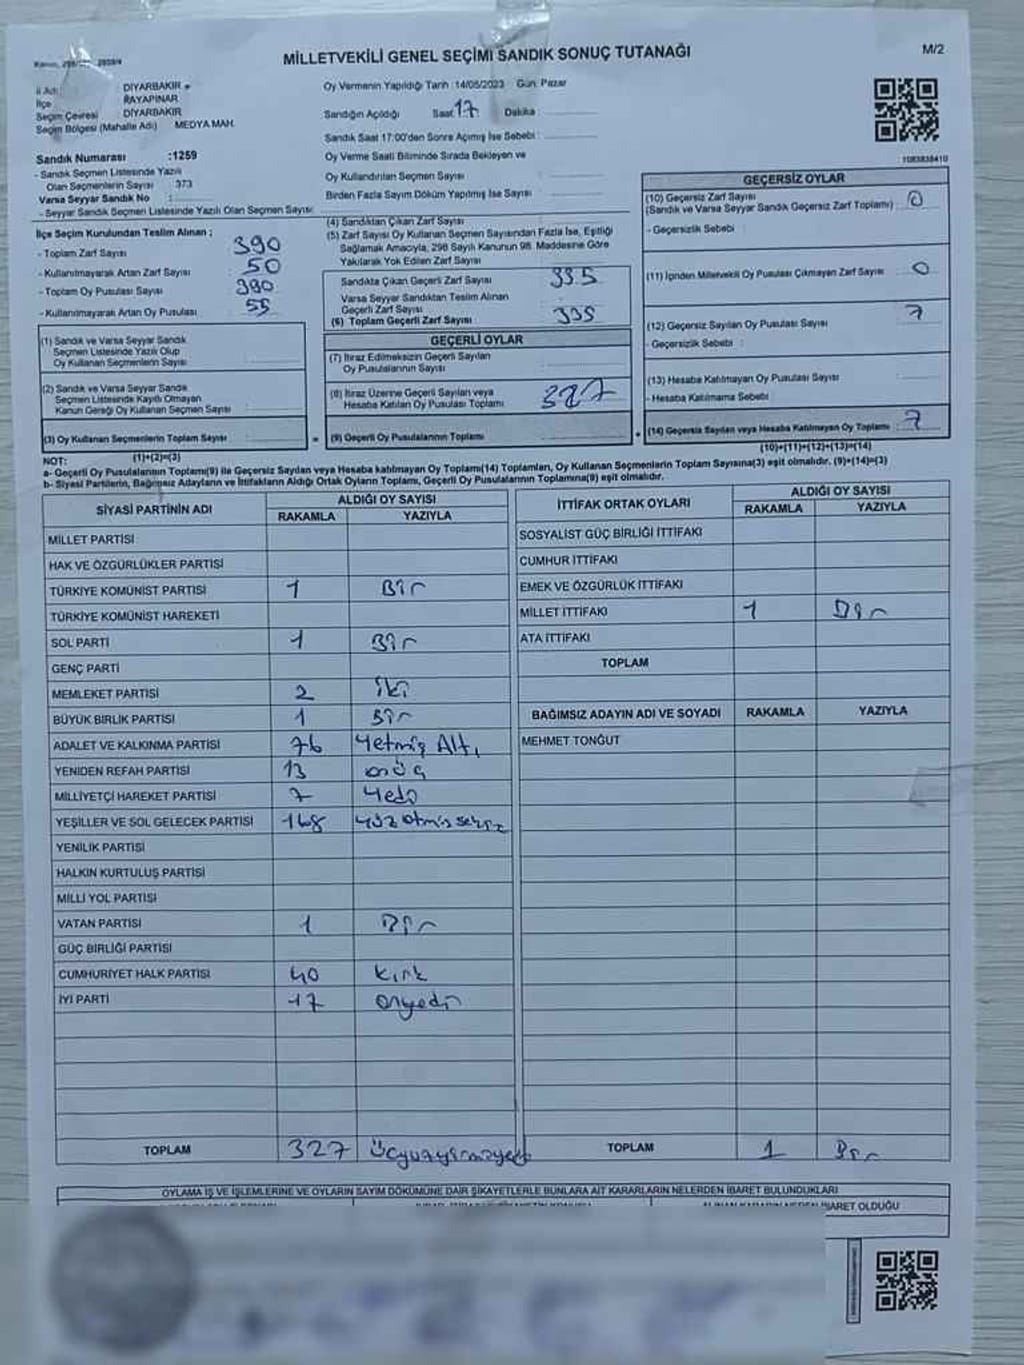 MİLLETVEKİLİ GENEL SEÇİMİ SANDIK SONUÇ TUTANAĞI
M/2
İl Adı : DİYARBAKIR
İlçe : KAYAPINAR
Seçim Çevresi : DİYARBAKIR
Seçim Bölgesi (Mahalle Adı) : MEDYA MAH.
Sandık Numarası :1259
- Sandık Seçmen Listesinde Yazılı
Olan Seçmenlerin Sayısı : 373
Varsa Seyyar Sandık No :
- Seyyar Sandık Seçmen Listesinde Yazılı Olan Seçmen Sayısı:
İlçe Seçim Kurulundan Teslim Alınan ;
- Toplam Zarf Sayısı : 390
- Kullanılmayarak Artan Zarf Sayısı : 50
- Toplam Oy Pusulası Sayısı : 390
- Kullanılmayarak Artan Oy Pusulası : 55
(1) Sandık ve Varsa Seyyar Sandık
Seçmen Listesinde Yazılı Olup
Oy Kullanan Seçmenlerin Sayısı
(2) Sandık ve Varsa Seyyar Sandık
Seçmen Listesinde Kayıtlı Olmayan
Kanun Gereği Oy Kullanan Seçmen Sayısı
(3) Oy Kullanan Seçmenlerin Toplam Sayısı
(1)+(2)=(3)
Oy Vermenin Yapıldığı Tarih :14/05/2023 Gün: Pazar
Sandığın Açıldığı Saat 17 Dakika :
Sandık Saat 17:00'den Sonra Açılmış İse Sebebi :
Oy Verme Saati Bitiminde Sırada Bekleyen ve
Oy Kullandırılan Seçmen Sayısı :
Birden Fazla Sayım Döküm Yapılmış İse Sayısı
(4) Sandıktan Çıkan Zarf Sayısı
(5) Zarf Sayısı Oy Kullanan Seçmen Sayısından Fazla İse, Eşitliği
Sağlamak Amacıyla, 298 Sayılı Kanunun 98. Maddesine Göre
Yakılarak Yok Edilen Zarf Sayısı
Sandıkta Çıkan Geçerli Zarf Sayısı 335
Varsa Seyyar Sandıktan Teslim Alınan
Geçerli Zarf Sayısı
(6) Toplam Geçerli Zarf Sayısı 335
GEÇERLİ OYLAR
(7) İtiraz Edilmeksizin Geçerli Sayılan
Oy Pusulalarının Sayısı
(8) İtiraz Üzerine Geçerli Sayılan veya
Hesaba Katılan Oy Pusulası Toplamı 327
(9) Geçerli Oy Pusulalarının Toplamı
1083838410
GEÇERSİZ OYLAR
(10) Geçersiz Zarf Sayısı
(Sandık ve Varsa Seyyar Sandık Geçersiz Zarf Toplamı) : 0
- Geçersizlik Sebebi :
(11) İçinden Milletvekili Oy Pusulası Çıkmayan Zarf Sayısı : 0
(12) Geçersiz Sayılan Oy Pusulası Sayısı : 7
- Geçersizlik Sebebi :
(13) Hesaba Katılmayan Oy Pusulası Sayısı
- Hesaba Katılmama Sebebi :
(14) Geçersiz Sayılan veya Hesaba Katılmayan Oy Toplamı : 7
(10)+(11)+(12)+(13)=(14)
NOT:
a- Geçerli Oy Pusulalarının Toplamı(9) ile Geçersiz Sayılan veya Hesaba katılmayan Oy Toplamı(14) Toplamları, Oy Kullanan Seçmenlerin Toplam Sayısına(3) eşit olmalıdır. (9)+(14)=(3)
b- Siyasi Partilerin, Bağımsız Adayların ve İttifakların Aldığı Ortak Oyların Toplamı, Geçerli Oy Pusulalarının Toplamına(9) eşit olmalıdır.
SİYASİ PARTİNİN ADI ALDIĞI OY SAYISI
RAKAMLA YAZIYLA
MİLLET PARTİSİ
HAK VE ÖZGÜRLÜKLER PARTİSİ
TÜRKİYE KOMÜNİST PARTİSİ 1 Bir
TÜRKİYE KOMÜNİST HAREKETİ
SOL PARTİ 1 Bir
GENÇ PARTİ
MEMLEKET PARTİSİ 2 iki
BÜYÜK BİRLİK PARTİSİ 1 Bir
ADALET VE KALKINMA PARTİSİ 76 Yetmiş Altı
YENİDEN REFAH PARTİSİ 13 onüç
MİLLİYETÇİ HAREKET PARTİSİ 7 Yedi
YEŞİLLER VE SOL GELECEK PARTİSİ 168 yüz otmiş sekiz
YENİLİK PARTİSİ
HALKIN KURTULUŞ PARTİSİ
MİLLİ YOL PARTİSİ
VATAN PARTİSİ 1 Bir
GÜÇ BİRLİĞİ PARTİSİ
CUMHURİYET HALK PARTİSİ 40 kırk
İYİ PARTİ 17 onyedi
TOPLAM 327
İTTİFAK ORTAK OYLARI ALDIĞI OY SAYISI
RAKAMLA YAZIYLA
SOSYALİST GÜÇ BİRLİĞİ İTTİFAKI
CUMHUR İTTİFAKI
EMEK VE ÖZGÜRLÜK İTTİFAKI
MİLLET İTTİFAKI 1 Bir
ATA İTTİFAKI
TOPLAM
BAĞIMSIZ ADAYIN ADI VE SOYADI RAKAMLA YAZIYLA
MEHMET TONĞUT
TOPLAM 1 Bir
OYLAMA İŞ VE İŞLEMLERİNE VE OYLARIN SAYIM DÖKÜMÜNE DAİR ŞİKAYETLERLE BUNLARA AİT KARARLARIN NELERDEN İBARET BULUNDUKLARI
İBARET OLDUĞU